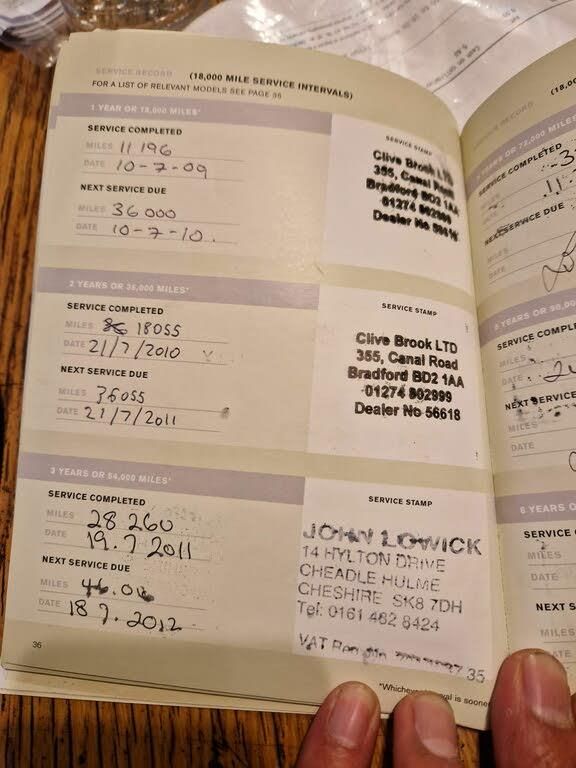 SERVICE RECORD (18,000 MILE SERVICE INTERVALS)
FOR A LIST OF RELEVANT MODELS SEE PAGE 35
1 YEAR OR 18,000 MILES*
SERVICE COMPLETED
MILES 11 196
DATE 10-7-09
NEXT SERVICE DUE
MILES 36000
DATE 10-7-10.
SERVICE STAMP
Clive Brook LTD
355, Canal Road
Bradford BD2 1AA
01274 802999
Dealer No 56618
2 YEARS OR 36,000 MILES*
SERVICE COMPLETED
MILES 18055
DATE 21/7/2010
NEXT SERVICE DUE
MILES 36055
DATE 21/7/2011
SERVICE STAMP
Clive Brook LTD
355, Canal Road
Bradford BD2 1AA
01274 802999
Dealer No 56618
3 YEARS OR 54,000 MILES*
SERVICE COMPLETED
MILES 28 260
DATE 19.7 2011
NEXT SERVICE DUE
MILES
DATE 18 7. 2012
SERVICE STAMP
JOHN LOWICK
14 HYLTON DRIVE
CHEADLE HULME
CHESHIRE SK8 7DH
Tel: 0161 482 8424
VAT 35
36
*Whichever is sooner
SERVICE RECORD
72,000 MILES
SERVICE COMPLETED
MILES
DATE 11
NEXT SERVICE DUE
MILES
DATE
5 YEARS OR 90,00
SERVICE COMPL
MILES
DATE
NEXT SERVICE
MILES
DATE
6 YEARS O
SERVICE
MILES
DATE
NEXT S
MILES
DATE